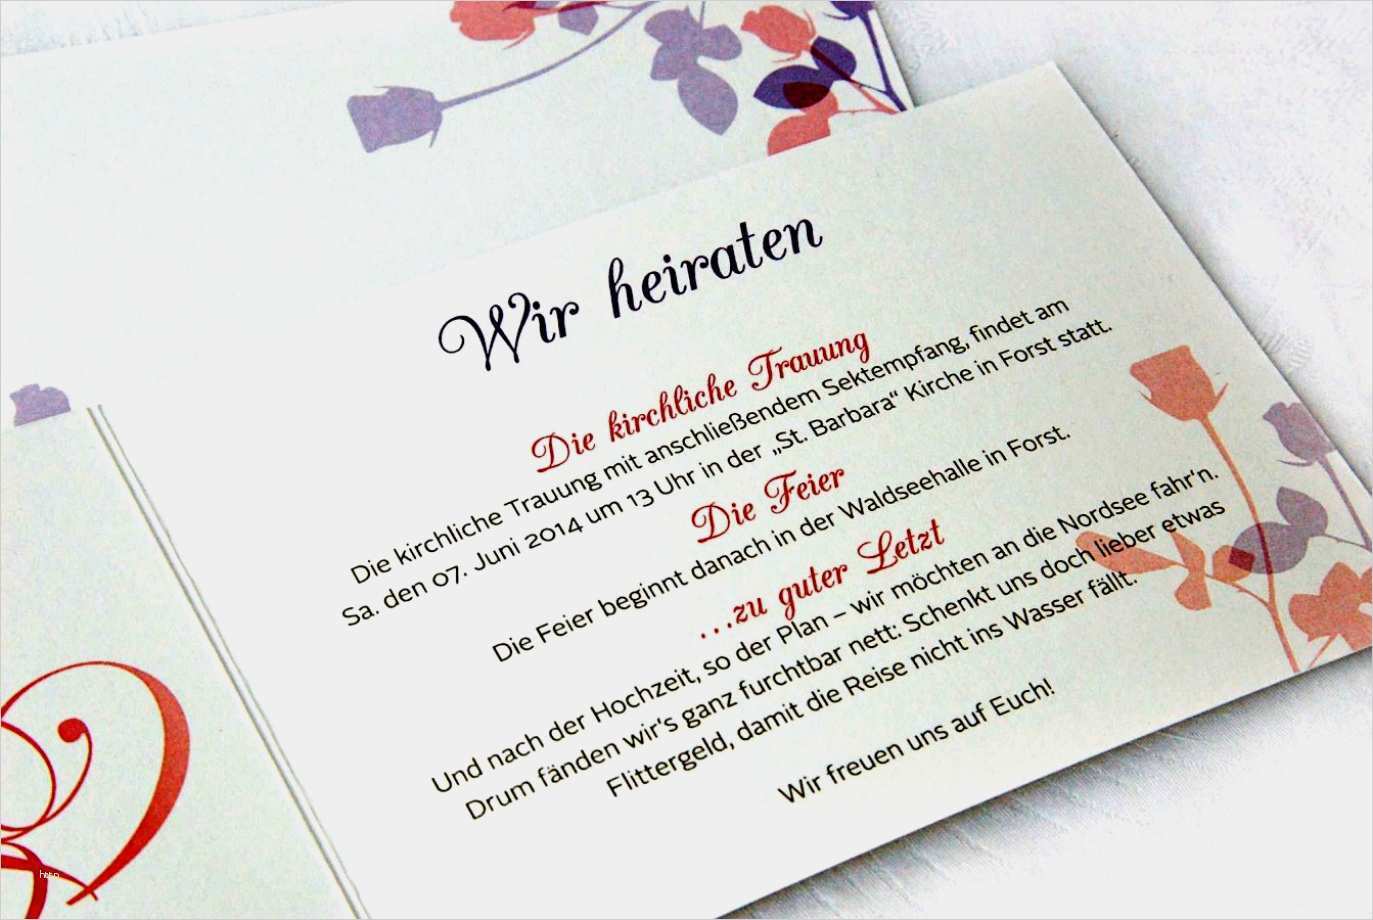 Wir heiraten
Die kirchliche Trauung
Die kirchliche Trauung mit anschließendem Sektempfang, findet am
Sa. den 07. Juni 2014 um 13 Uhr in der „St. Barbara“ Kirche in Forst statt.
Die Feier
Die Feier beginnt danach in der Waldseehalle in Forst.
...zu guter Letzt
Und nach der Hochzeit, so der Plan – wir möchten an die Nordsee fahr'n.
Drum fänden wir's ganz furchtbar nett: Schenkt uns doch lieber etwas
Flittergeld, damit die Reise nicht ins Wasser fällt.
Wir freuen uns auf Euch!
http